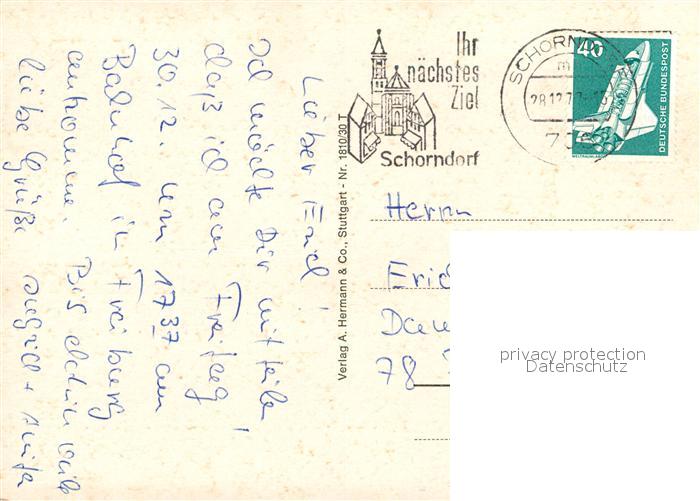 Lieber Erich!
Ich möchte Dir mitteilen
daß ich am Freitag!
30.12. um 17 37 am
Bahnhof in Freiburg
ankomme. Bis dahin viele
liebe Grüße + Anita
Verlag A. Hermann & Co., Stuttgart - Nr. 1810/30 T
Ihr
nächstes
Ziel
Schorndorf
SCHORND
m
28.12.77
706
40
DEUTSCHE BUNDESPOST
WELTRAUMLABOR
Herrn
Erich
Dau
78
privacy protection
Datenschutz